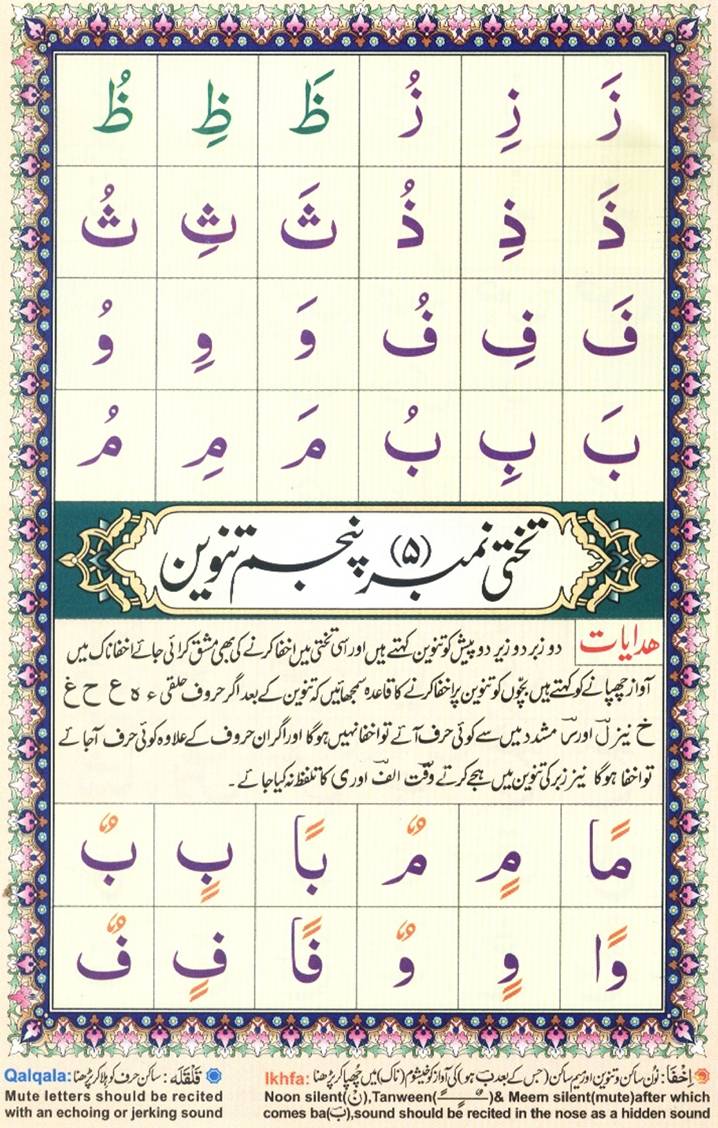 زَ زِ زُ ظَ ظِ ظُ
ذَ ذِ ذُ ثَ ثِ ثُ
فَ فِ فُ وَ وِ وُ
بَ بِ بُ مَ مِ مُ
تختی نمبر (۵) پنجم تنوین
ھدایات دو زبر دو زیر دو پیش کو تنوین کہتے ہیں اور اسی تختی میں اخفا کرنے کی بھی مشق کرائی جائے اخفا ناک میں
آواز چھپانے کو کہتے ہیں بچّوں کو تنوین پر اخفا کرنے کا قاعدہ سمجھائیں کہ تنوین کے بعد اگر حروف حلقی ء ہ ع ح غ
خ نیز ل اور ر مشدد میں سے کوئی حرف آئے تو اخفا نہیں ہوگا اور اگر ان حروف کے علاوہ کوئی حرف آجائے
تو اخفا ہوگا نیز زبر کی تنوین میں ہجے کرتے وقت الف اور ی کا تلفظ نہ کیا جائے ۔
مًا مٍ مٌ بًا بٍ بٌ
وًا وٍ وٌ فًا فٍ فٌ
اِخْفَا: نُون ساکن و تنوین اور میم ساکن (جس کے بعد ب ہو) کی آواز کو خیشوم (ناک) میں چُھپا کر پڑھنا Ikhfa:
Noon silent(نْ),Tanween(ـًـٍـٌ)& Meem silent(mute)after which
comes ba(بَ),sound should be recited in the nose as a hidden sound
قَلْقَلَه: ساکن حرف کو ہلا کر پڑھنا Qalqala:
Mute letters should be recited
with an echoing or jerking sound